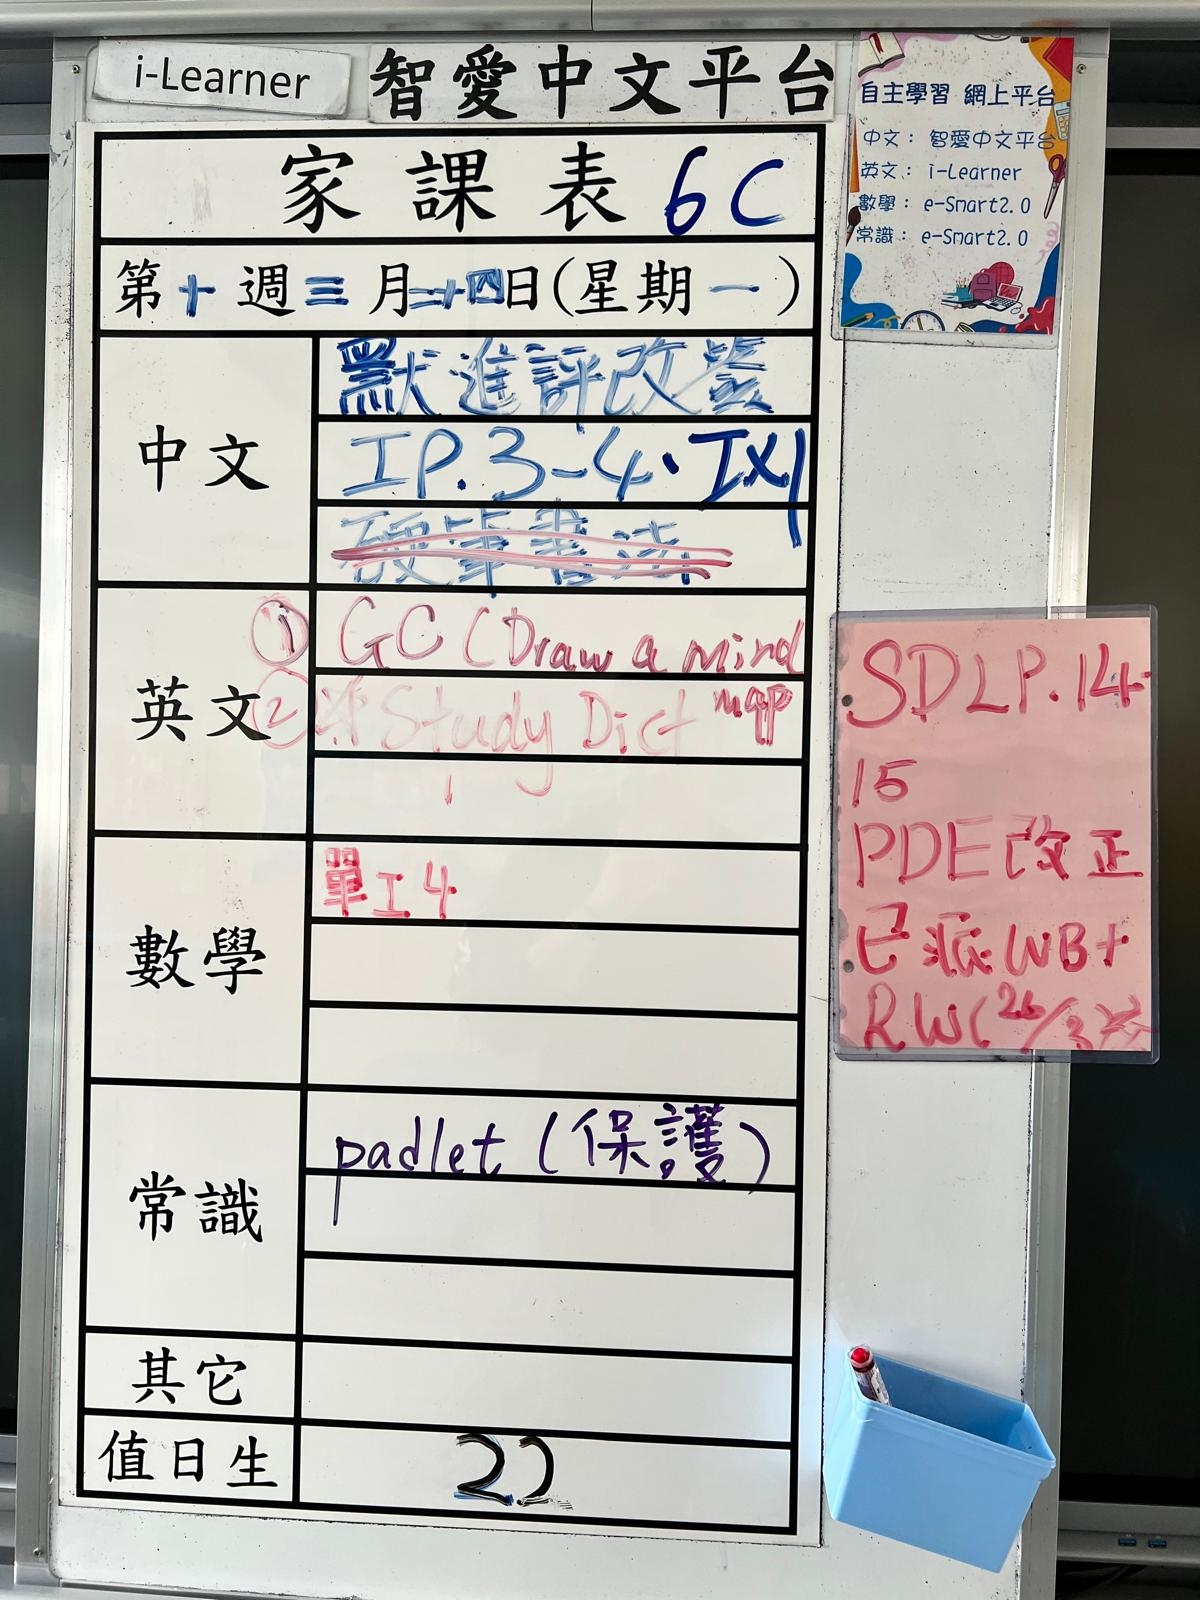 i-Learner 智愛中文平台
自主學習 網上平台
中文： 智愛中文平台
英文： i-Learner
數學： e-Smart2.0
常識： e-Smart2.0
家課表 6C
第十週三月二十四日(星期一)
中文
默進評改簽
IP.3-4.
硬筆書法
英文
① GC (Draw a mind
map
② Study Dict
數學
單工4
常識
padlet (保護)
其它
值日生
22
SDLP.14-
15
PDE改正
已派WB+
RW(26/3